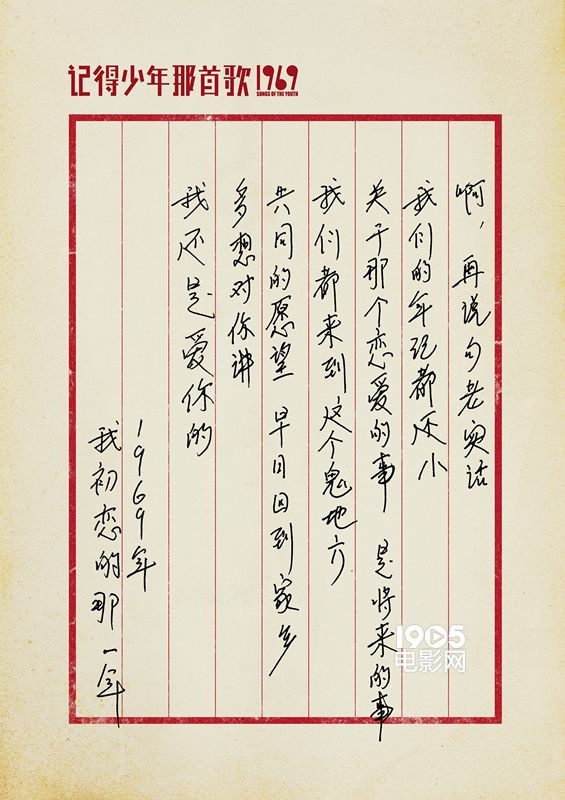 记得少年那首歌1969
SONGS OF THE YOUTH
啊，再说句老实话
我们的年纪都还小
关于那个恋爱的事 是将来的事
我们都来到这个鬼地方
共同的愿望 早日回到家乡
多想对你讲
我还是爱你的
1969年
我初恋的那一年
1905
电影网